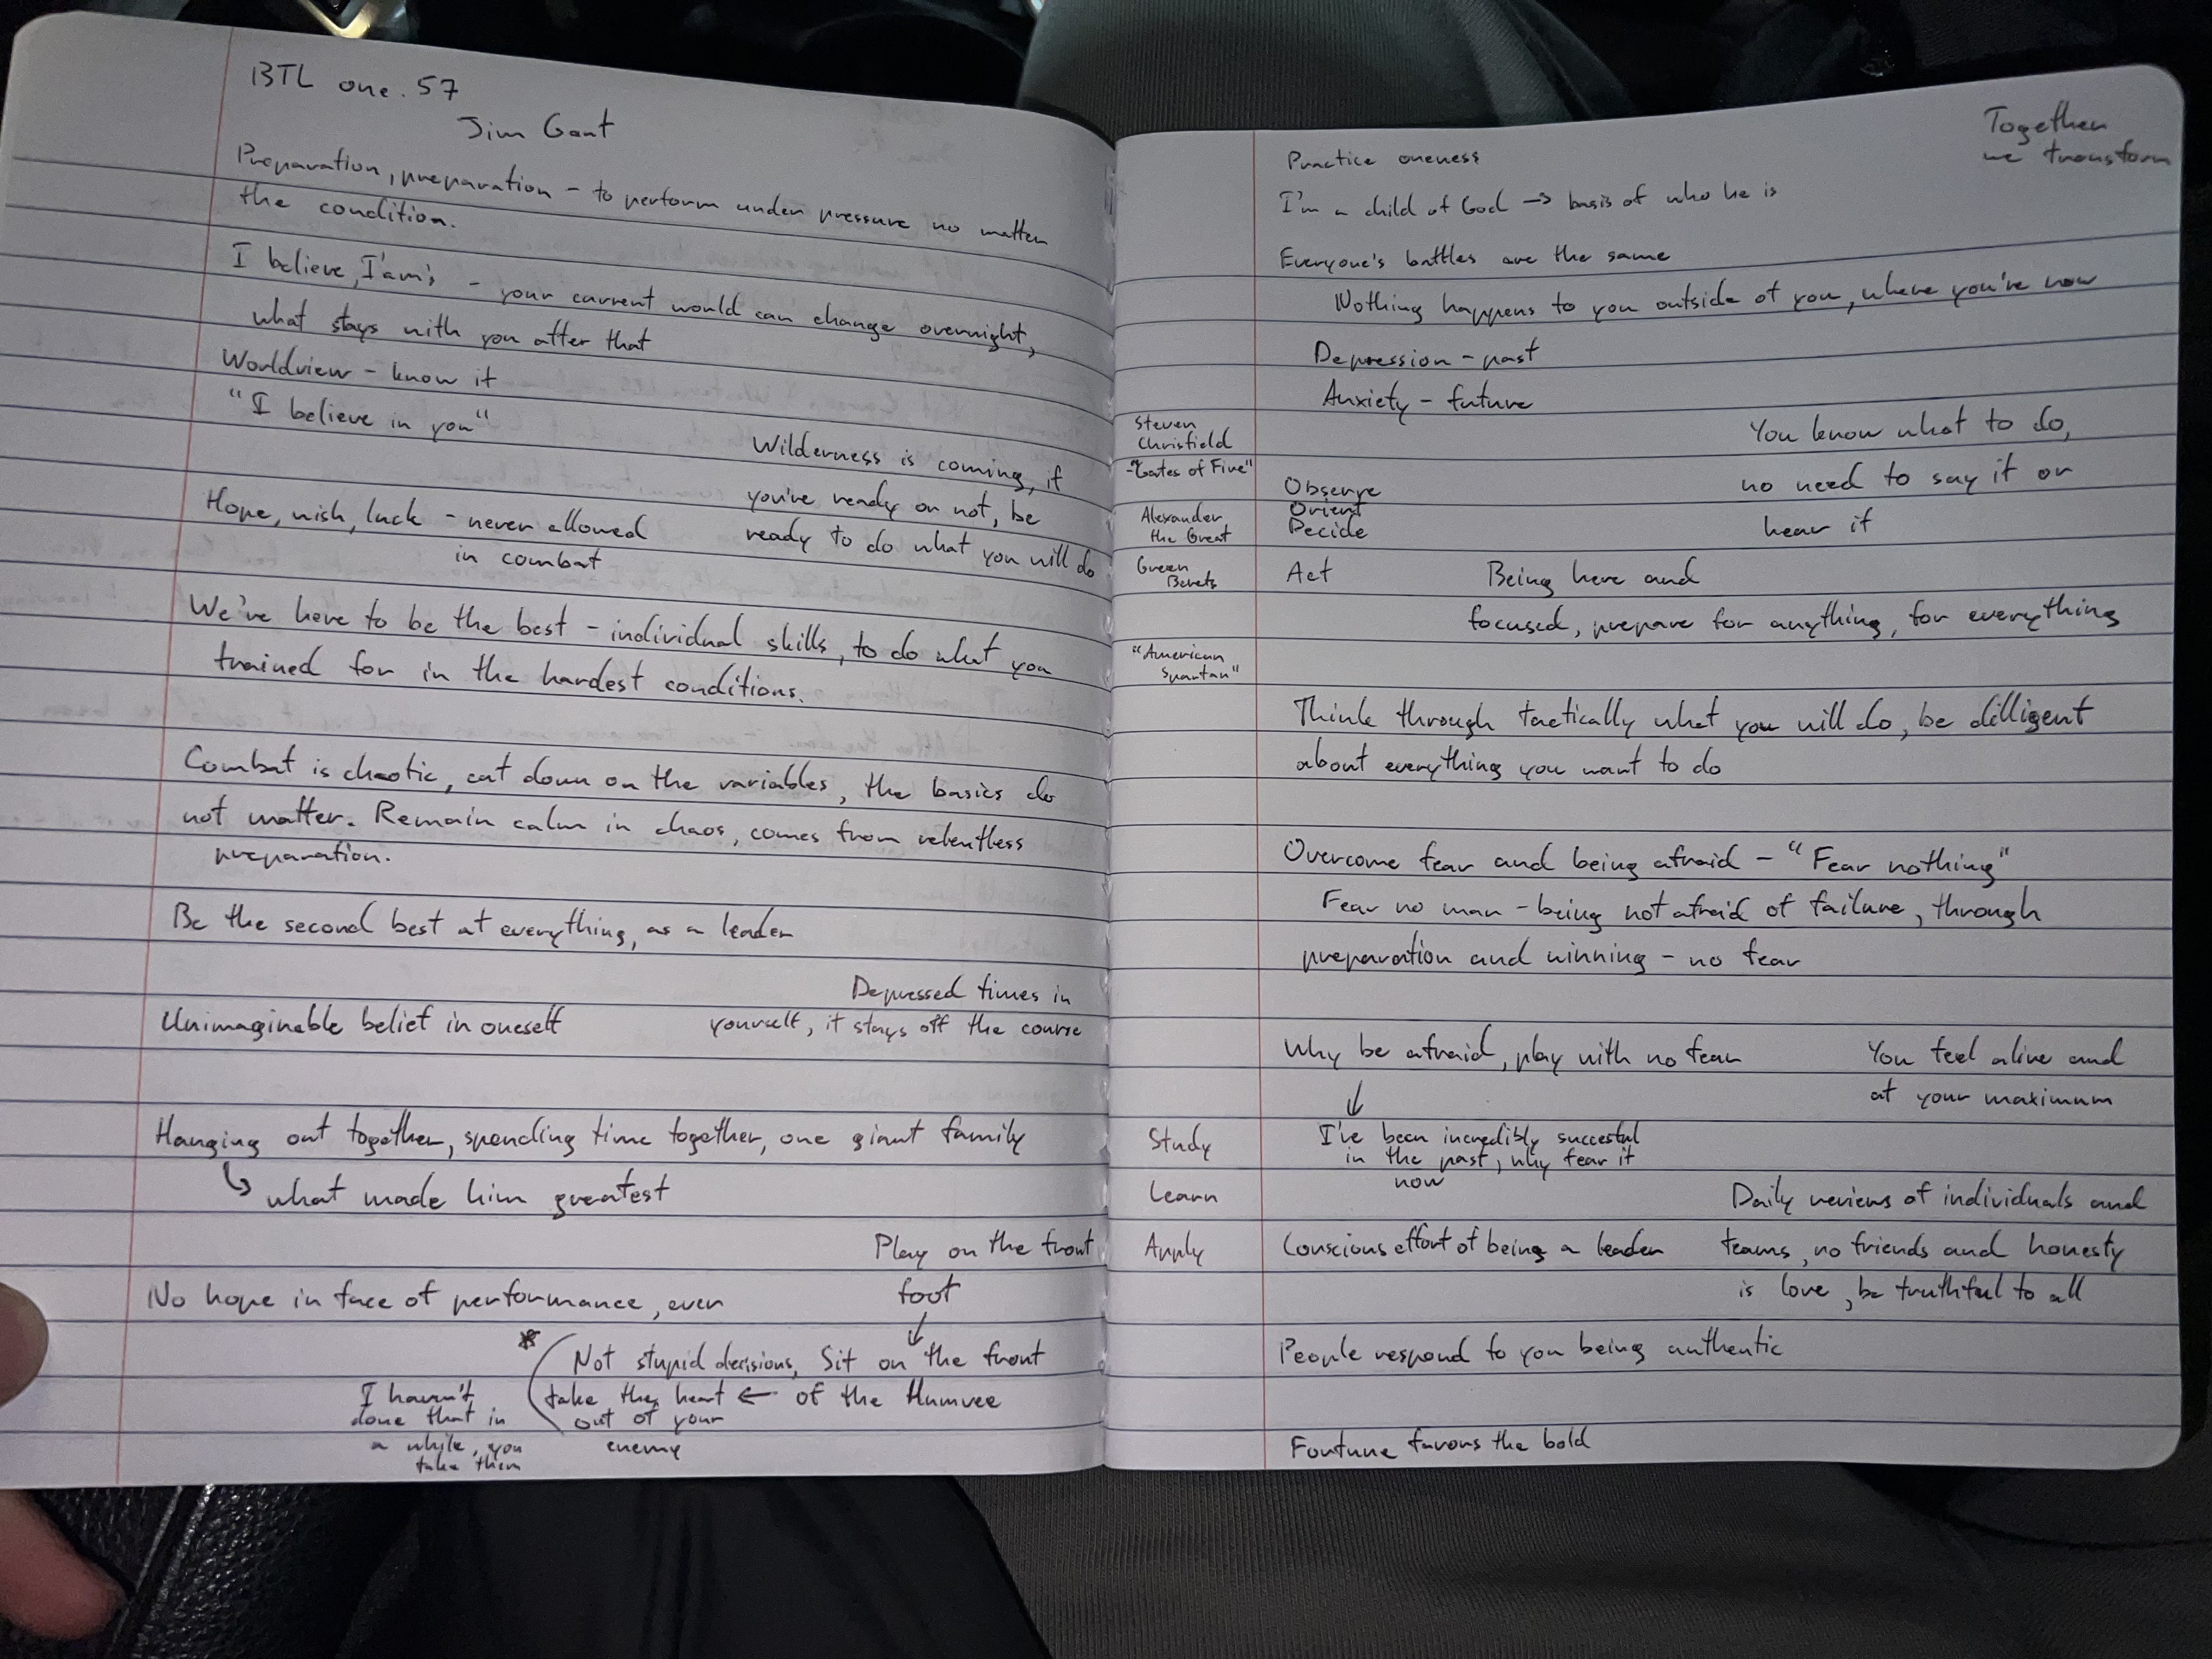 BTL one. 57
Jim Gant
Preparation, preparation - to perform under pressure no matter
the condition.
I believe, I'am's - your current would can change overnight,
what stays with you after that
Worldview - know it
"I believe in you"
Wilderness is coming, if
you're ready or not, be
ready to do what you will do
Hope, wish, luck - never allowed
in combat
We've here to be the best - individual skills, to do what you
trained for in the hardest conditions.
Combat is chaotic, cut down on the variables, the basics do
not matter. Remain calm in chaos, comes from relentless
preparation.
Be the second best at everything, as a leader
Depressed times in
yourself, it stays off the course
Unimaginable belief in oneself
Hanging out together, spending time together, one giant family
↳ what made him greatest
Play on the front
foot
↓
No hope in face of performance, ever
* Not stupid decisions, Sit on the front
take the heart ← of the Humvee
out of your
enemy
I haven't
done that in
a while, you
take them
Together
we transform
Practice oneness
I'm a child of God → basis of who he is
Everyone's battles are the same
Nothing happens to you outside of you, where you're now
Depression - past
Anxiety - future
Steven
Chrisfield
-"Gates of Five"
Alexander
the Great
Green
Berets
"American
Spartan"
You know what to do,
no need to say it or
hear it
Observe
Orient
Decide
Act
Being here and
focused, prepare for anything, for everything
Think through tactically what you will do, be dilligent
about everything you want to do
Overcome fear and being afraid - "Fear nothing"
Fear no man - being not afraid of failure, through
preparation and winning - no fear
Why be afraid, play with no fear
↓
I've been incredibly succesful
in the past, why fear it
now
You feel alive and
at your maximum
Study
Learn
Apply
Daily reviews of individuals and
teams, no friends and honesty
is love, be truthful to all
Conscious effort of being a leader
People respond to you being authentic
Fortune favors the bold